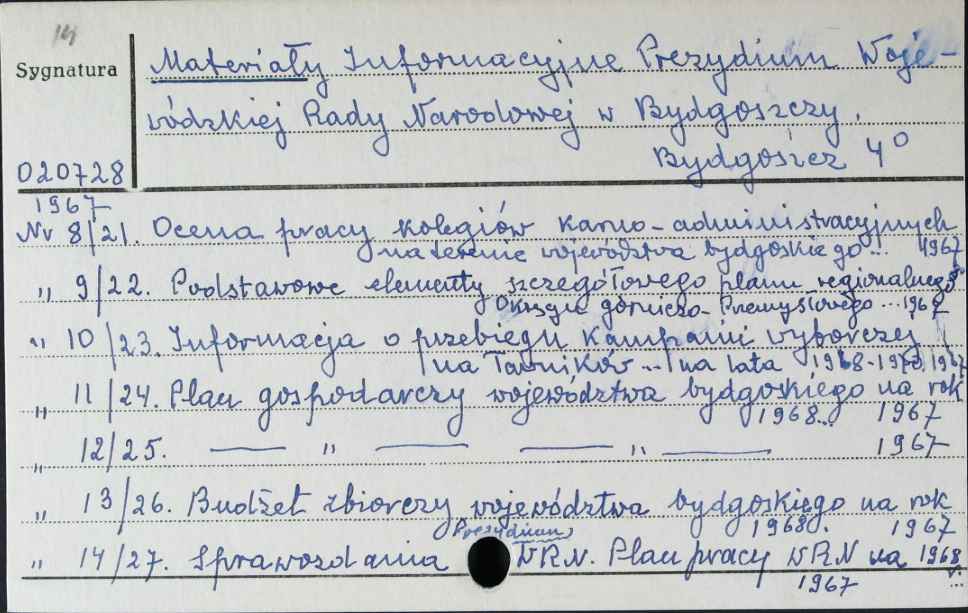 14
Sygnatura
Materiały Informacyjne Prezydium Woje-
wódzkiej Rady Narodowej w Bydgoszczy.
Bydgoszcz 4°
020728
1967
Nr 8/21. Ocena pracy kolegiów karno-administracyjnych
na terenie województwa bydgoskiego... 1967
„ 9/22. Podstawowe elementy szczegółowego planu regionalnego
Okręgu górniczo-Przemysłowego ...1967
„ 10/23. Informacja o przebiegu kampanii wyborczej
na ławników ... na lata 1968-1970, 1967
„ 11/24. Plan gospodarczy województwa bydgoskiego na rok
1968... 1967
„ 12/25. — „ — — „ — 1967
„ 13/26. Budżet zbiorczy województwa bydgoskiego na rok
1968. 1967
Prezydium
„ 14/27. Sprawozdania WRN. Plan pracy WRN na 1968
1967